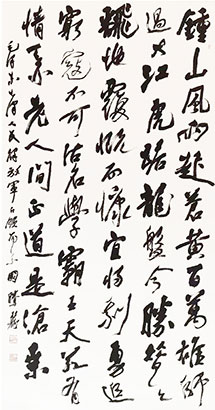 鍾山風雨起蒼黃百萬雄師
過大江虎踞龍盤今勝昔天
翻地覆慨而慷宜將剩勇追
窮寇不可沽名學霸王天若有
情天亦老人間正道是滄桑
毛澤東 人民解放軍占領南京